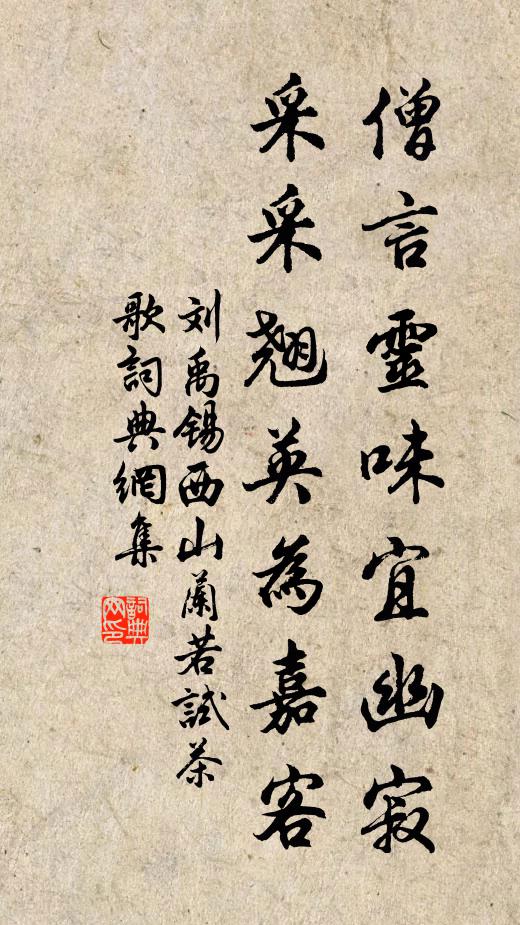 僧言靈味宜幽寂
采采翹英為嘉客
刘禹锡西山蘭若試茶
歌詞典網集
詞典网印